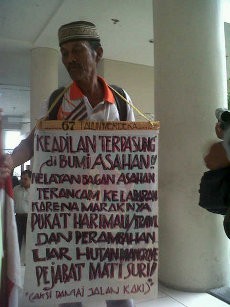 67 TAHUN MERDEKA
KEADILAN TERPASUNG
di BUMI ASAHAN!!
NELAYAN BAGAN ASAHAN
TERANCAM KELAPARAN
KARENA MARAKNYA
PUKAT HARIMAU/TRAWL
DAN PERAMBAHAN
LIAR HUTAN MANGROVE
PEJABAT MATI SURI
"(AKSI DAMAI JALAN KAKI)"